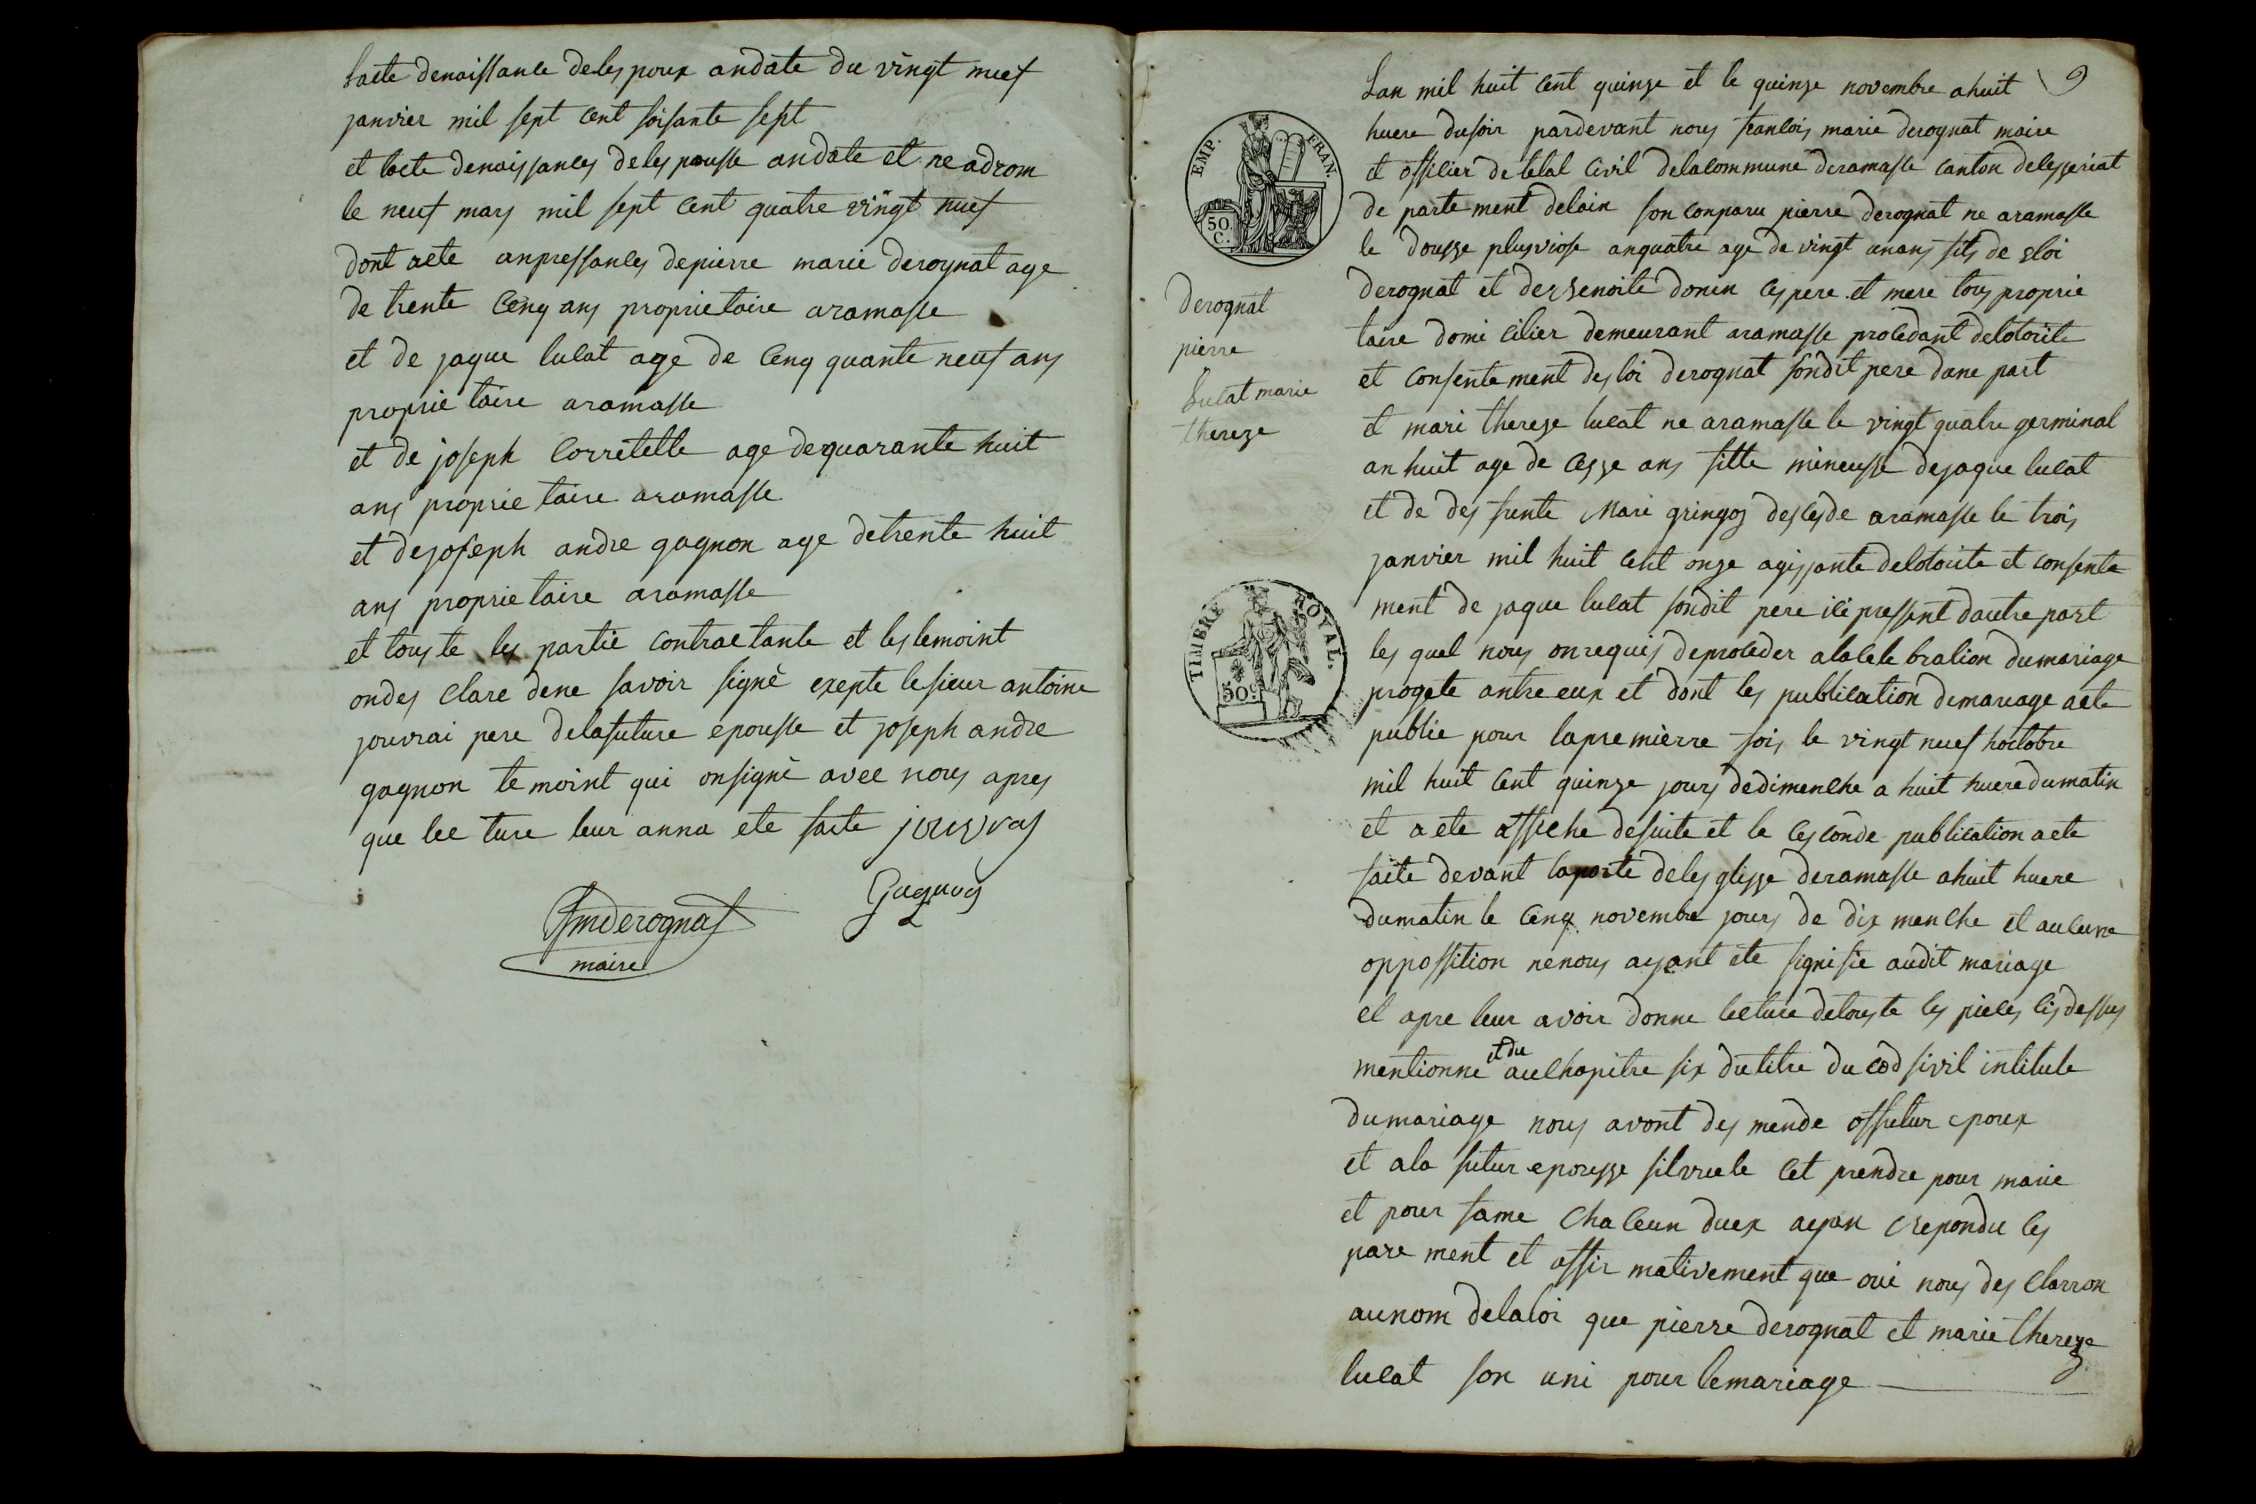 lacte denaissance deles poux andate du vingt nuef
janvier mil sept cent soisante sept
et lacte denaissances deles pousse andate et ne adrom
le neuf mars mil sept cent quatre vingt nuef
dont acte anpressances depierre marie derognat age
de trente cenq ans proprietaire aramasse
et de jaque lucat age de cenq quante neuf ans
proprie taire aramasse
et de joseph Corretelle age dequarante huit
ans proprie taire aramasse
et dejoseph andre gagnon age detrente huit
ans proprietaire aramasse
et touste les partie contractante et les temoint
ondes clare dene savoir signè exepte lesieur antoine
jouvrai pere delafuture epousse et joseph andre
gagnon te moint qui onsignè avec nous apres
que lec ture leur anna ete faite jouvray
Gagnon
fmderognat
maire
9
Lan mil huit cent quinze et le quinze novembre ahuit
huere dusoir pardevant nous francois marie derognat maire
et officier de letat civil delacommune deramasse canton deceyzeriat
de parte ment delain son conparu pierre derognat ne aramasse
le dousze plusviose anquatre age de vingt anans fils de eloi
derognat et debenoite donin ces pere et mere tous proprie
taire domi cilier demeurant aramasse procedant delotorite
et consente ment des loi derognat sondit pere dune part
et mari thereze lucat ne aramasse le vingt quatre germinal
an huit age de cesze ans fille mineusse dejaque lucat
et de desfunte Marie gringoz descesde aramasse le trois
janvier mil huit cent onze agissante delotorite et consente
ment de jaque lucat sondit pere ici pressent dautre part
les quel nous onrequis deproceder alacele bration dumariage
progete antre eux et dont les publication demariage acte
publie pour lapremierre fois le vingt nuef hoctobre
mil huit cent quinze jours dedimenche a huit huere dumatin
et a ete affiche desuite et le cesconde publication a ete
faite devant laporte deles glisse deramasse ahuit huere
dumatin le cenq novembre jours de dix menche et aucune
oppossition nenous ayant ete signifie audit mariage
et apre leur avoir donne lecture detouste les pieces cisdessus
mentionne et du auchapitre six dutitre du cod sivil intitule
dumariage nous avont des mende offutur epoux
et ala futur epousse silvuele cet prendre pour marie
et pour fame chacun duex ayan repondu ces
pare ment et affir mativement que oui nous des clarron
aunom delaloi que pierre derognat et marie thereze
lucat son uni pour lemariage
EMP. FRAN.
50.
C.
derognat
pierre
Lucat marie
thereze
TIMBRE ROYAL.
50c